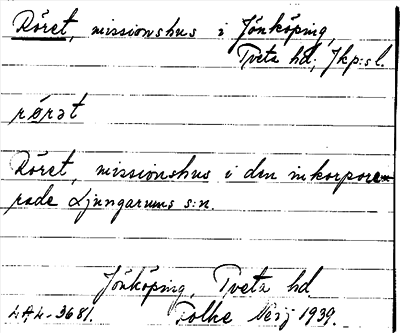 Röret, missionshus i Jönköping,
Tveta hd, Jkp:s l.
rørət
Röret, missionshus i den inkorpore-
rade Ljungarums s:n.
Jönköping, Tveta hd
Folke Neij 1939.